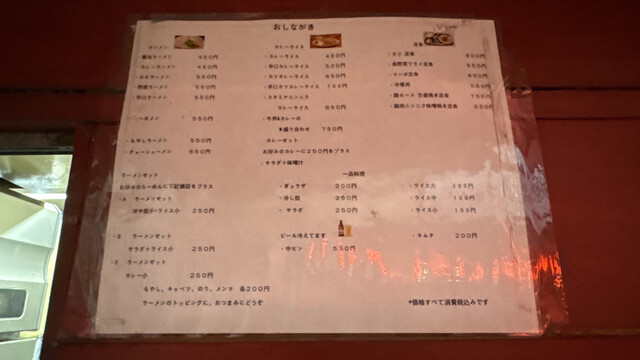 おしながき
ラーメン
醤油ラーメン 450円
・カレーラーメン 450円
・みそラーメン 550円
・野菜ラーメン 550円
・辛口ラーメン 550円
ーメン 550円
・もやしラーメン 550円
・チャーシューメン 650円
カレーライス
・カレーライス 450円
・辛口カレーライス 500円
・カツカレーライス 650円
・辛口カツカレーライス
・スタミナニンニク
カレーライス 650円
・牛丼&カレーの
*盛り合わせ 750円
カレーセット
お好みのカレーに250円をプラス
・サラダ+味噌汁
定食
・カツ 定食 600円
・魚野菜フライ定食 550円
・マーボ定食 600円
・中華丼 550円
・豚ロース 生姜焼き定食 750円
・鶏肉ニンニク味噌焼き定食 650円
ラーメンセット
お好みのらーめんに下記値段をプラス
・A ラーメンセット
冷や奴小+ライス小 250円
・B ラーメンセット
サラダ+ライス小 250円
・C ラーメンセット
カレー小
250円
一品料理
・ギョウザ 300円
・冷し奴 250円
・サラダ 250円
・ライス大
・ライス中
・ライス小
ビール冷えてます
・中ビン 550円
・キムチ 200円
もやし、キャベツ、のり、メンマ 各200円
ラーメンのトッピングに、おつまみにどうぞ
*価格すべて消費税込みです